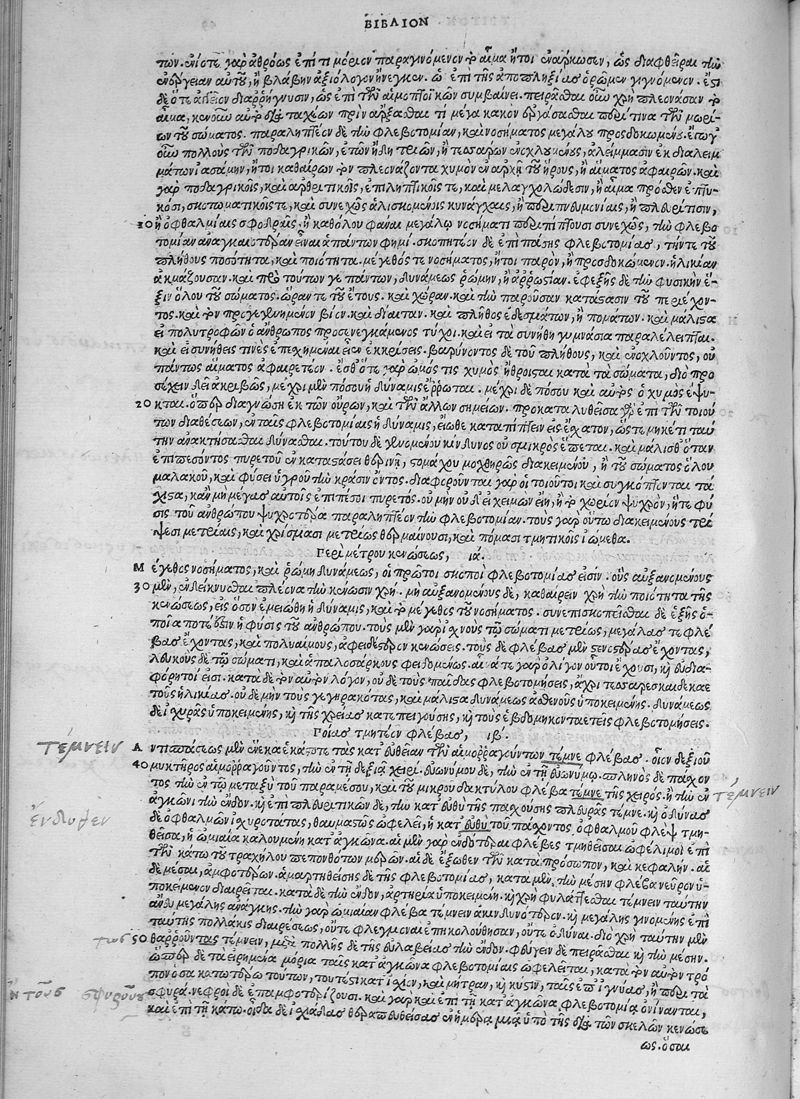 ΒΙΒΛΙΟΝ
των. ἐνίοτε γὰρ ἀθρόως ἐπί τι μόριον παραγινόμενον τὸ αἷμα ἤτοι ἐνάρκωσεν, ὡς διαφθεῖραι τὴν
ἐνέργειαν αὐτοῦ, ἢ βλάβην ἀξιόλογον ἤνεγκεν. ὃ ἐπὶ τῆς ἀποπληξίας ὁρῶμεν γιγνόμενον. ἔστι
δὲ ὅτε ἀγγεῖον διαρρήγνυσιν, ὡς ἐπὶ τῶν αἱμοπτοϊκῶν συμβαίνει. πειρᾶσθαι οὖν χρὴ πλεονάσαν τὸ
αἷμα, κενοῦν αὐτὸ διὰ ταχέων πρὶν ἄρξασθαί τι μέγα κακὸν ἐργάσασθαι περί τινα τῶν μορί-
ων τοῦ σώματος. παραληπτέον δὲ τὴν φλεβοτομίαν, καὶ νοσήματος μεγάλου προσδοκωμένου. ἔγωγ᾽
οὖν πολλοὺς τῶν ποδαγρικῶν, ἐτῶν ἤδη τριῶν, ἢ τεσσάρων ἐνοχλουμένους,
μάτων ἰασάμην, ἤτοι καθαίρων τὸν πλεονάζοντα χυμὸν ἐν ἀρχῇ τοῦ ἦρος, ἢ αἵματος ἀφαιρῶν. καὶ
γὰρ ποδαγρικοῖς, καὶ ἀρθριτικοῖς, ἐπιληπτικοῖς τε, καὶ μελαγχολώδεσιν, ἢ αἷμα πρόσθεν ἐπτυ-
κόσι, σκοτωματικοῖς τε, καὶ συνεχῶς ἁλισκομένοις κυνάγχαις, ἢ περιπνευμονίαις, ἢ πλευρίτισιν,
10 ἢ ὀφθαλμίαις σφοδραῖς. ἢ καθόλου φάναι μεγάλῳ νοσήματι περιπίπτουσι συνεχῶς, τὴν φλεβο
τομίαν ἀναγκαιοτέραν εἶναι ἁπάντων φημί. σκοπητέον δὲ ἐπὶ πάσης φλεβοτομίας, τήν τε τοῦ
πλήθους ποσότητα, καὶ ποιότητα. μέγεθός τε νοσήματος, ἤτοι παρὸν, ἢ προσδοκώμενον. ἡλικίαν
ἀκμάζουσαν. καὶ πρὸ τούτων γε πάντων, δυνάμεως ῥώμην, ἢ ἀρρωστίαν. ἐφεξῆς δὲ τὴν φυσικὴν ἕ-
ξιν ὅλου τοῦ σώματος. ὥραν τε τοῦ ἔτους. καὶ χώραν. καὶ τὴν παροῦσαν κατάστασιν τοῦ περιέχον-
τος. καὶ τὸν προγεγενημένον βίον. καὶ δίαιταν. καὶ πλῆθος ἐδεσμάτων, ἢ πομάτων. καὶ μάλιστα
εἰ πολυτροφῶν ὁ ἄνθρωπος προσενεγκάμενος τύχοι. καὶ εἰ τὰ συνήθη γυμνάσια παραλέλειπται.
καὶ εἰ συνήθεις τινὲς ἐπεχημέναι εἶεν ἐκκρίσεις. βαρύνοντος δὲ τοῦ πλήθους, καὶ ἐνοχλοῦντος, οὐ
πάντως αἵματος ἀφαιρετέον. ἔσθ᾽ ὅτε γὰρ ὠμός τις χυμὸς ἤθροισται κατὰ τὰ σώματα, διὸ προ
σέχειν δεῖ ἀκριβῶς, μέχρι μὲν πόσου ἡ δύναμις ἔρρωται. μέχρι δὲ πόσου καὶ αὐτὸς ὁ χυμὸς ἔψυ-
20 κται. ὅπερ διαγνώσῃ ἐκ τῶν οὔρων, καὶ τῶν ἄλλων σημείων. προκαταλυθεῖσα γὰρ ἐπὶ τῶν τοιού
των διαθέσεων, ἐν ταῖς φλεβοτομίαις ἡ δύναμις, εἴωθε καταπίπτειν εἰς ἔσχατον, ὥστε μηκέτι ταύ
την ἀνακτήσασθαι δύνασθαι. τούτου δὲ γενομένου κίνδυνος οὐ σμικρὸς ἕπεται. καὶ μάλισθ᾽ ὅταν
ἐπιπεσόντος πυρετοῦ ἐν καταστάσει θερινῇ, στομάχου μοχθηρῶς διακειμένου, ἢ τοῦ σώματος ὅλου
μαλακοῦ, καὶ φύσει ὑγροῦ τὴν κρᾶσιν ὄντος. διαφοροῦνται γὰρ οἱ τοιοῦτοι καὶ συγκόπτονται τά
χιστα, κἂν μὴ μέγας αὐτοῖς ἐπιπέσοι πυρετός. οὐ μὴν οὐδ᾽ εἰ χειμὼν εἴη, ἢ τὸ χωρίον ψυχρὸν, ἥ τε φύ
σις τοῦ ἀνθρώπου ψυχροτέρα παραληπτέον τὴν φλεβοτομίαν. τοὺς γὰρ οὕτω διακειμένους τρί
ψεσι μετρίαις, καὶ χρίσμασι μετρίως θερμαίνουσι, καὶ πόμασι τμητικοῖς ἰώμεθα.
Περὶ μέτρου κενώσεως, ια.
Μ έγεθος νοσήματος, καὶ ῥώμη δυνάμεως, οἱ πρῶτοι σκοποὶ φλεβοτομίας εἰσίν. οὓς αὐξανομένους
30 μὲν, ἐνδείκνυσθαι πλέονα τὴν κένωσιν χρή. μὴ αὐξανομένους δὲ, καθαιρεῖν χρὴ τὴν ποιότητα τῆς
κενώσεως, εἰς ὅσον ἐμειώθη ἡ δύναμις, καὶ τὸ μέγεθος τοῦ νοσήματος. συνεπισκοπεῖσθαι δὲ ἑξῆς ὁ-
ποία ποτέ ἐστιν ἡ φύσις τοῦ ἀνθρώπου. τοὺς μὲν γὰρ ἰσχνοὺς τῷ σώματι μετρίως, μεγάλας τε φλέ
βας ἔχοντας, καὶ πολυαίμους, ἀφειδέστερον κενώσεις. τοὺς δὲ φλέβας μὲν στενοτέρας ἔχοντας,
λευκοὺς δὲ τῷ σώματι, καὶ ἁπαλοσάρκους φειδομένως. αἷμά τε γὰρ ὀλίγον οὗτοι ἔχουσι, καὶ εὐδια-
φόρητοί εἰσι. κατὰ δὲ τὸν αὐτὸν λόγον, οὐδὲ τοὺς παῖδας φλεβοτομήσεις, ἄχρι τεσσαρεσκαίδεκαε
τοῦς ἡλικίας. οὐδὲ μὴν τοὺς γεγηρακότας, καὶ μάλιστα δυνάμεως ἀσθενοῦς ὑποκειμένης. δυνάμεως
δὲ ἰσχυρᾶς ὑποκειμένης, καὶ τῆς χρείας κατεπειγούσης, καὶ τοὺς ἑβδομηκονταετεῖς φλεβοτομήσεις.
Ποίας τμητέον φλέβας, ιβ.
τέμνειν
Α ντισπάσεως μὲν ἕνεκα ἑκάστοτε τὰς κατ᾽ εὐθεῖαν τῶν αἱμορραγούντων τέμνε φλέβας. οἷον δεξιοῦ
40 μυκτῆρος αἱμορραγοῦντος, τὴν ἐν τῇ δεξιᾷ χειρί. εὐωνύμου δὲ, τὴν ἐν τῇ εὐωνύμῳ. σπληνὸς δὲ πάσχον
τος τὴν ἐν τῷ μεταξὺ τοῦ παραμέσου, καὶ τοῦ μικροῦ δακτύλου φλέβα τέμνε τῆς χειρός. ἢ τὴν ἐν
τέμνειν
ἀγκῶνι τὴν ἔνδον. καὶ ἐπὶ πλευριτικῶν δὲ, τὴν κατ᾽ εὐθὺ τῆς πασχούσης πλευρᾶς τέμνε. καὶ ὀδύνας
δὲ ὀφθαλμῶν ἰσχυροτάτας, θαυμαστῶς ὠφελεῖ, ἡ κατ᾽ εὐθὺ τοῦ πάσχοντος ὀφθαλμοῦ φλὲψ τμη-
θεῖσα, ἡ ὠμιαία καλουμένη κατ᾽ ἀγκῶνα. αἱ μὲν γὰρ ἐνδότεραι φλέβες τμηθεῖσαι ὠφέλιμοι ἐπὶ
τῶν κάτω τοῦ τραχήλου πεπονθότων μερῶν. αἱ δὲ ἔξωθεν τῶν κατὰ πρόσωπον, καὶ κεφαλήν. αἱ
δὲ μέσαι, ἀμφοτέρων. ἁμαρτηθείσης δὲ τῆς φλεβοτομίας, κατὰ μὲν τὴν μέσην φλέβα νεῦρον ὑ-
ποκείμενον διαιρεῖται. κατὰ δὲ τὴν ἔνδον, ἀρτηρία ὑποκειμένη. καὶ χρὴ φυλάττεσθαι τέμνειν ταύτην
ἄνευ μεγάλης ἀνάγκης. τὴν γὰρ ὠμιαίαν φλέβα τέμνειν ἀκινδυνότερον. καὶ μεγάλης γινομένης ἐπὶ
ταύτης πολλάκις διαιρέσεως, οὔτε φλεγμοναὶ ἐπηκολούθησαν, οὔτε ὀδύναι. διὸ χρὴ ταύτην μὲν
50 θαρροῦντας τέμνειν, μετὰ πολλῆς δὲ τῆς εὐλαβείας τὴν ἔνδον. φεύγειν δὲ πειρᾶσθαι καὶ τὴν μέσην.
ὥσπερ δὲ τὰ εἰρημένα μόρια ταῖς κατ᾽ ἀγκῶνα φλεβοτομίαις ὠφελεῖται, κατὰ τὸν αὐτὸν τρό
πον ὅσα κατωτέρω τούτων, τουτέστι κατ᾽ ἰσχίον, καὶ μήτραν, καὶ κύστιν, ταῖς ἐπ᾽ ἰγνύας, ἢ περὶ τὰ
σφυρά. νεφροὶ δὲ ἐπαμφοτερίζουσι. καὶ γὰρ καὶ ἐπὶ τῇ κατ᾽ ἀγκῶνα φλεβοτομίᾳ ὀνίνανται,
καὶ ἐπὶ τῇ κάτω. οἶδα δὲ ἰσχιάδας θεραπευθείσας ἐν ἡμέρᾳ μιᾷ ὑπὸ τῆς διὰ τῶν σκελῶν κενώσε
ως. ὅσαι